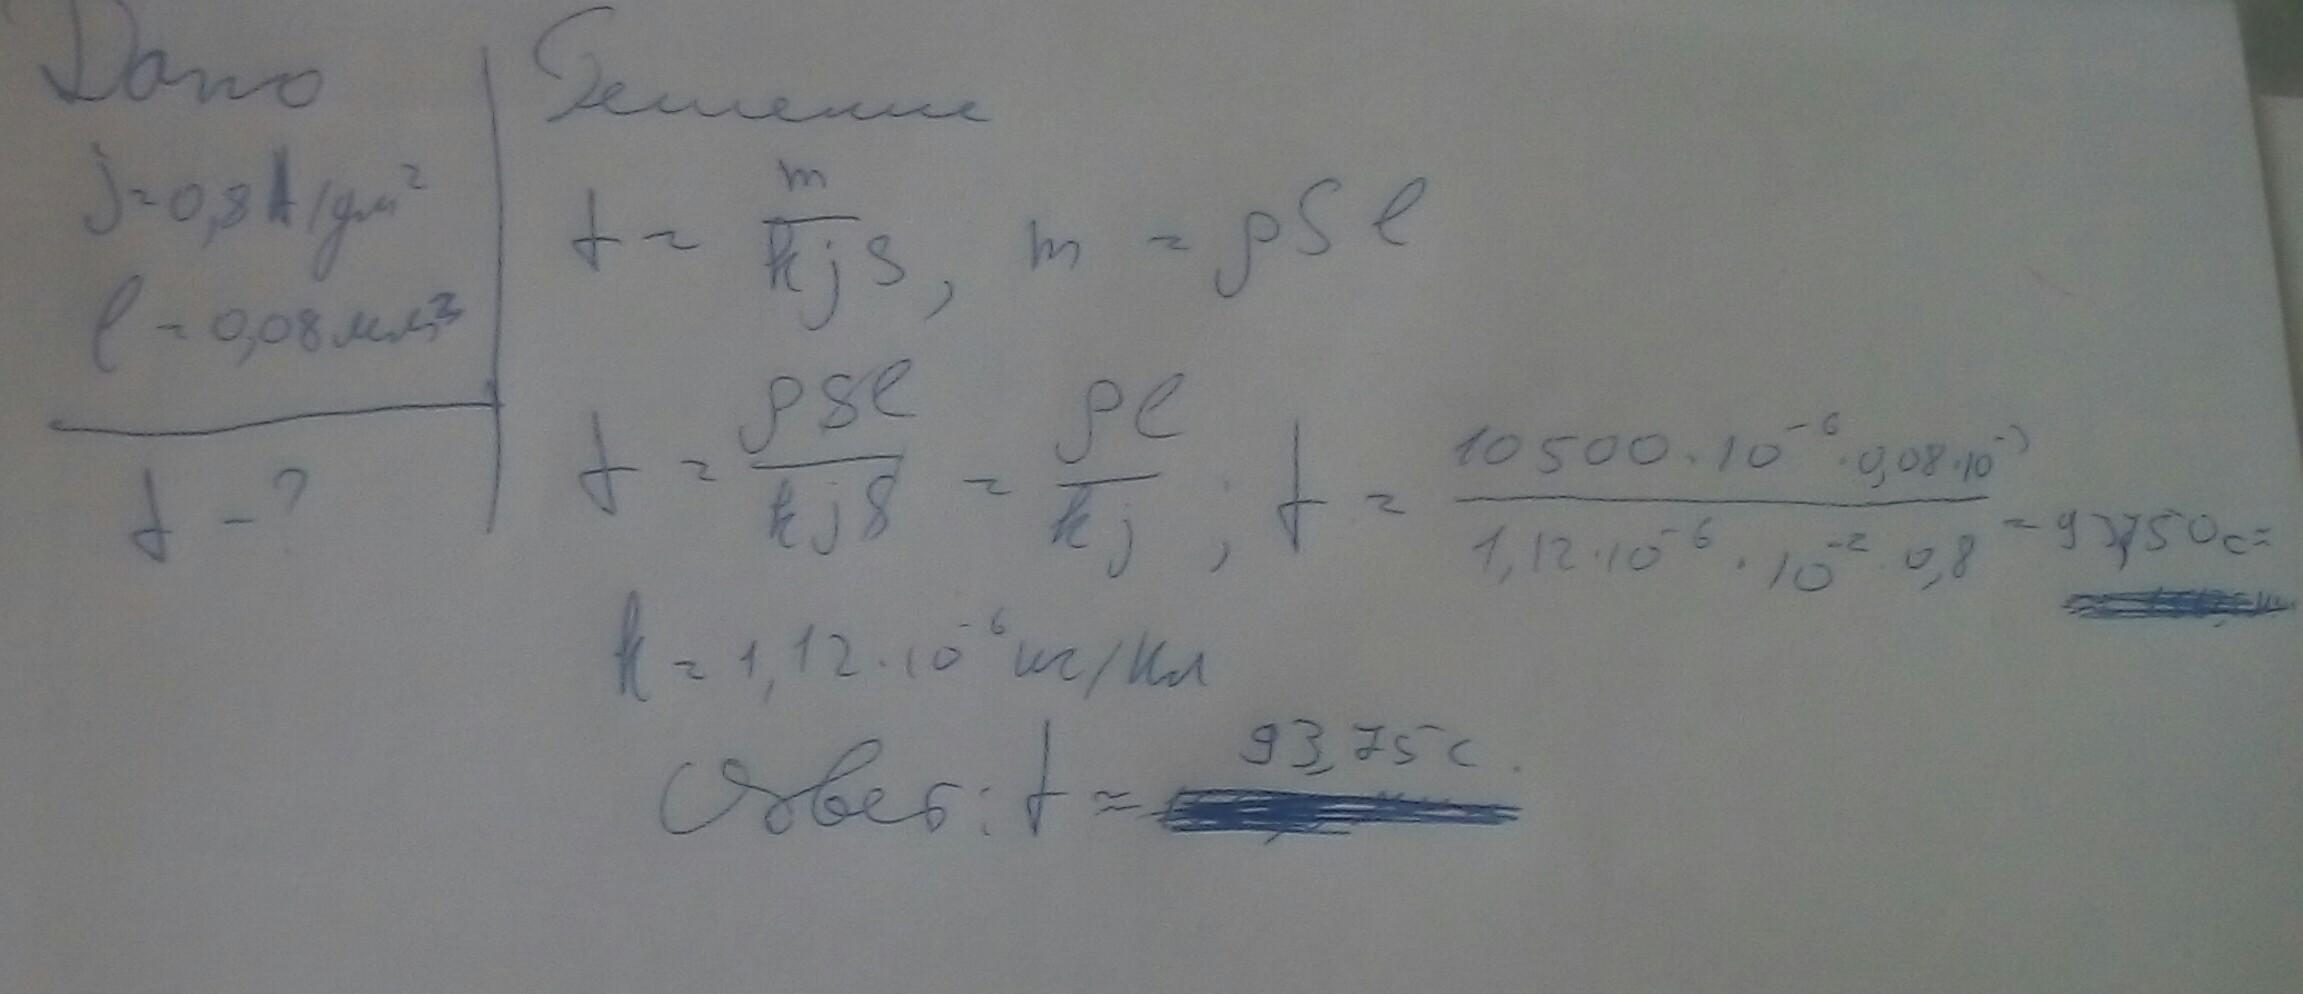 Дано
j = 0,8 А/дм²
l = 0,08 мм³
t - ?
Решение
t = m / kjS, m = ρSl
t = ρSl / kjS = ρl / kj ; t = 10500·10⁻⁶·0,08·10⁻³ / 1,12·10⁻⁶·10⁻²·0,8 = 93,750 с =
k = 1,12·10⁻⁶ кг/Кл
Ответ: t = 93,75 с.